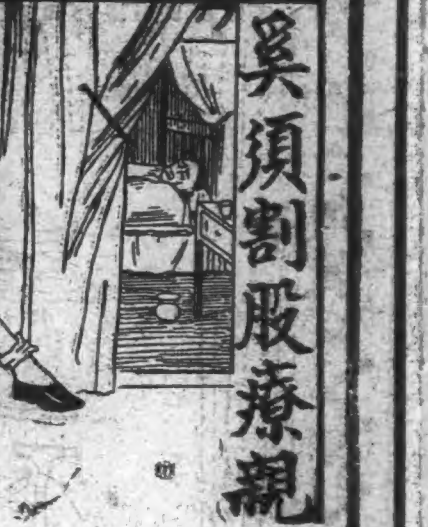 奚須割股療親